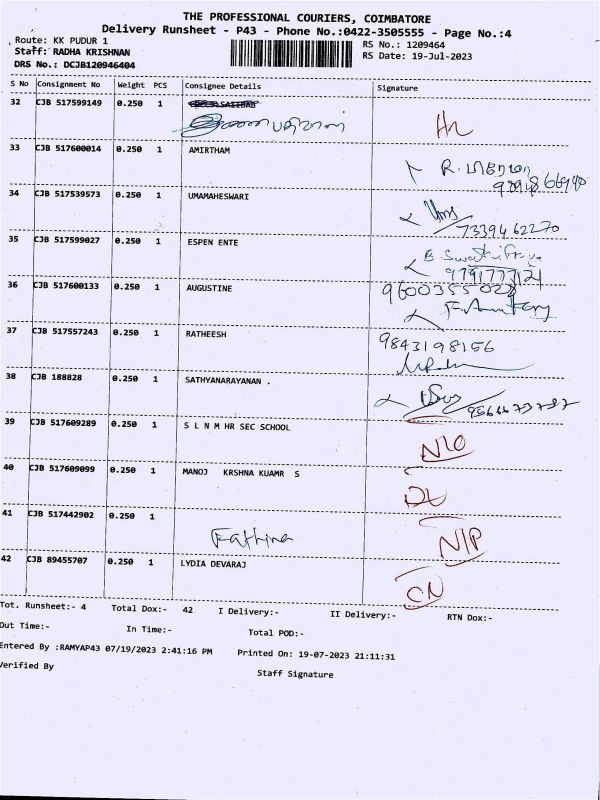 THE PROFESSIONAL COURIERS, COIMBATORE
Delivery Runsheet - P43 - Phone No.:0422-3505555 - Page No.:4
Route: KK PUDUR 1 RS No.: 1209464
Staff: RADHA KRISHNAN RS Date: 19-Jul-2023
DRS No.: DCJB120946404
S No Consignment No Weight PCS Consignee Details Signature
32 CJB 517599149 0.250 1
33 CJB 517600014 0.250 1 AMIRTHAM R.
34 CJB 517539573 0.250 1 UMAMAHESWARI
7339462270
35 CJB 517599027 0.250 1 ESPEN ENTE
36 CJB 517600133 0.250 1 AUGUSTINE 9600355028
37 CJB 517557243 0.250 1 RATHEESH 9843198156
38 CJB 188828 0.250 1 SATHYANARAYANAN .
39 CJB 517609289 0.250 1 S L N M HR SEC SCHOOL
40 CJB 517609099 0.250 1 MANOJ KRSHNA KUAMR S DL
41 CJB 517442902 0.250 1
Fathina N/P
42 CJB 89455707 0.250 1 LYDIA DEVARAJ
CN
Tot. Runsheet:- 4 Total Dox:- 42 I Delivery:- II Delivery:- RTN Dox:-
Out Time:- In Time:- Total POD:-
Entered By :RAMYAP43 07/19/2023 2:41:16 PM Printed On: 19-07-2023 21:11:31
Verified By Staff Signature